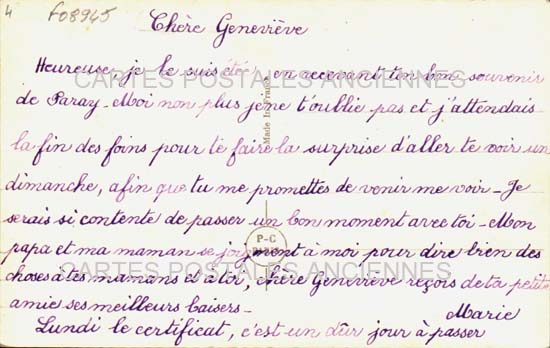 4 f08945
Chère Geneviève
Heureuse, je le suis été en recevant ton bon souvenir
de Paray - Moi non plus je ne t'oublie pas et j'attendais
la fin des foins pour te faire la surprise d'aller te voir un
dimanche, afin que tu me promettes de venir me voir - Je
serais si contente de passer un bon moment avec toi - Mon
papa et ma maman se joignent à moi pour dire bien des
choses à tes mamans et à toi, chère Geneviève reçois de ta petite
amie ses meilleurs baisers -
Marie
Lundi le certificat, c'est un dûr jour à passer
CARTES POSTALES ANCIENNES
CARTES POSTALES ANCIENNES
Made in France
P-C
PARIS